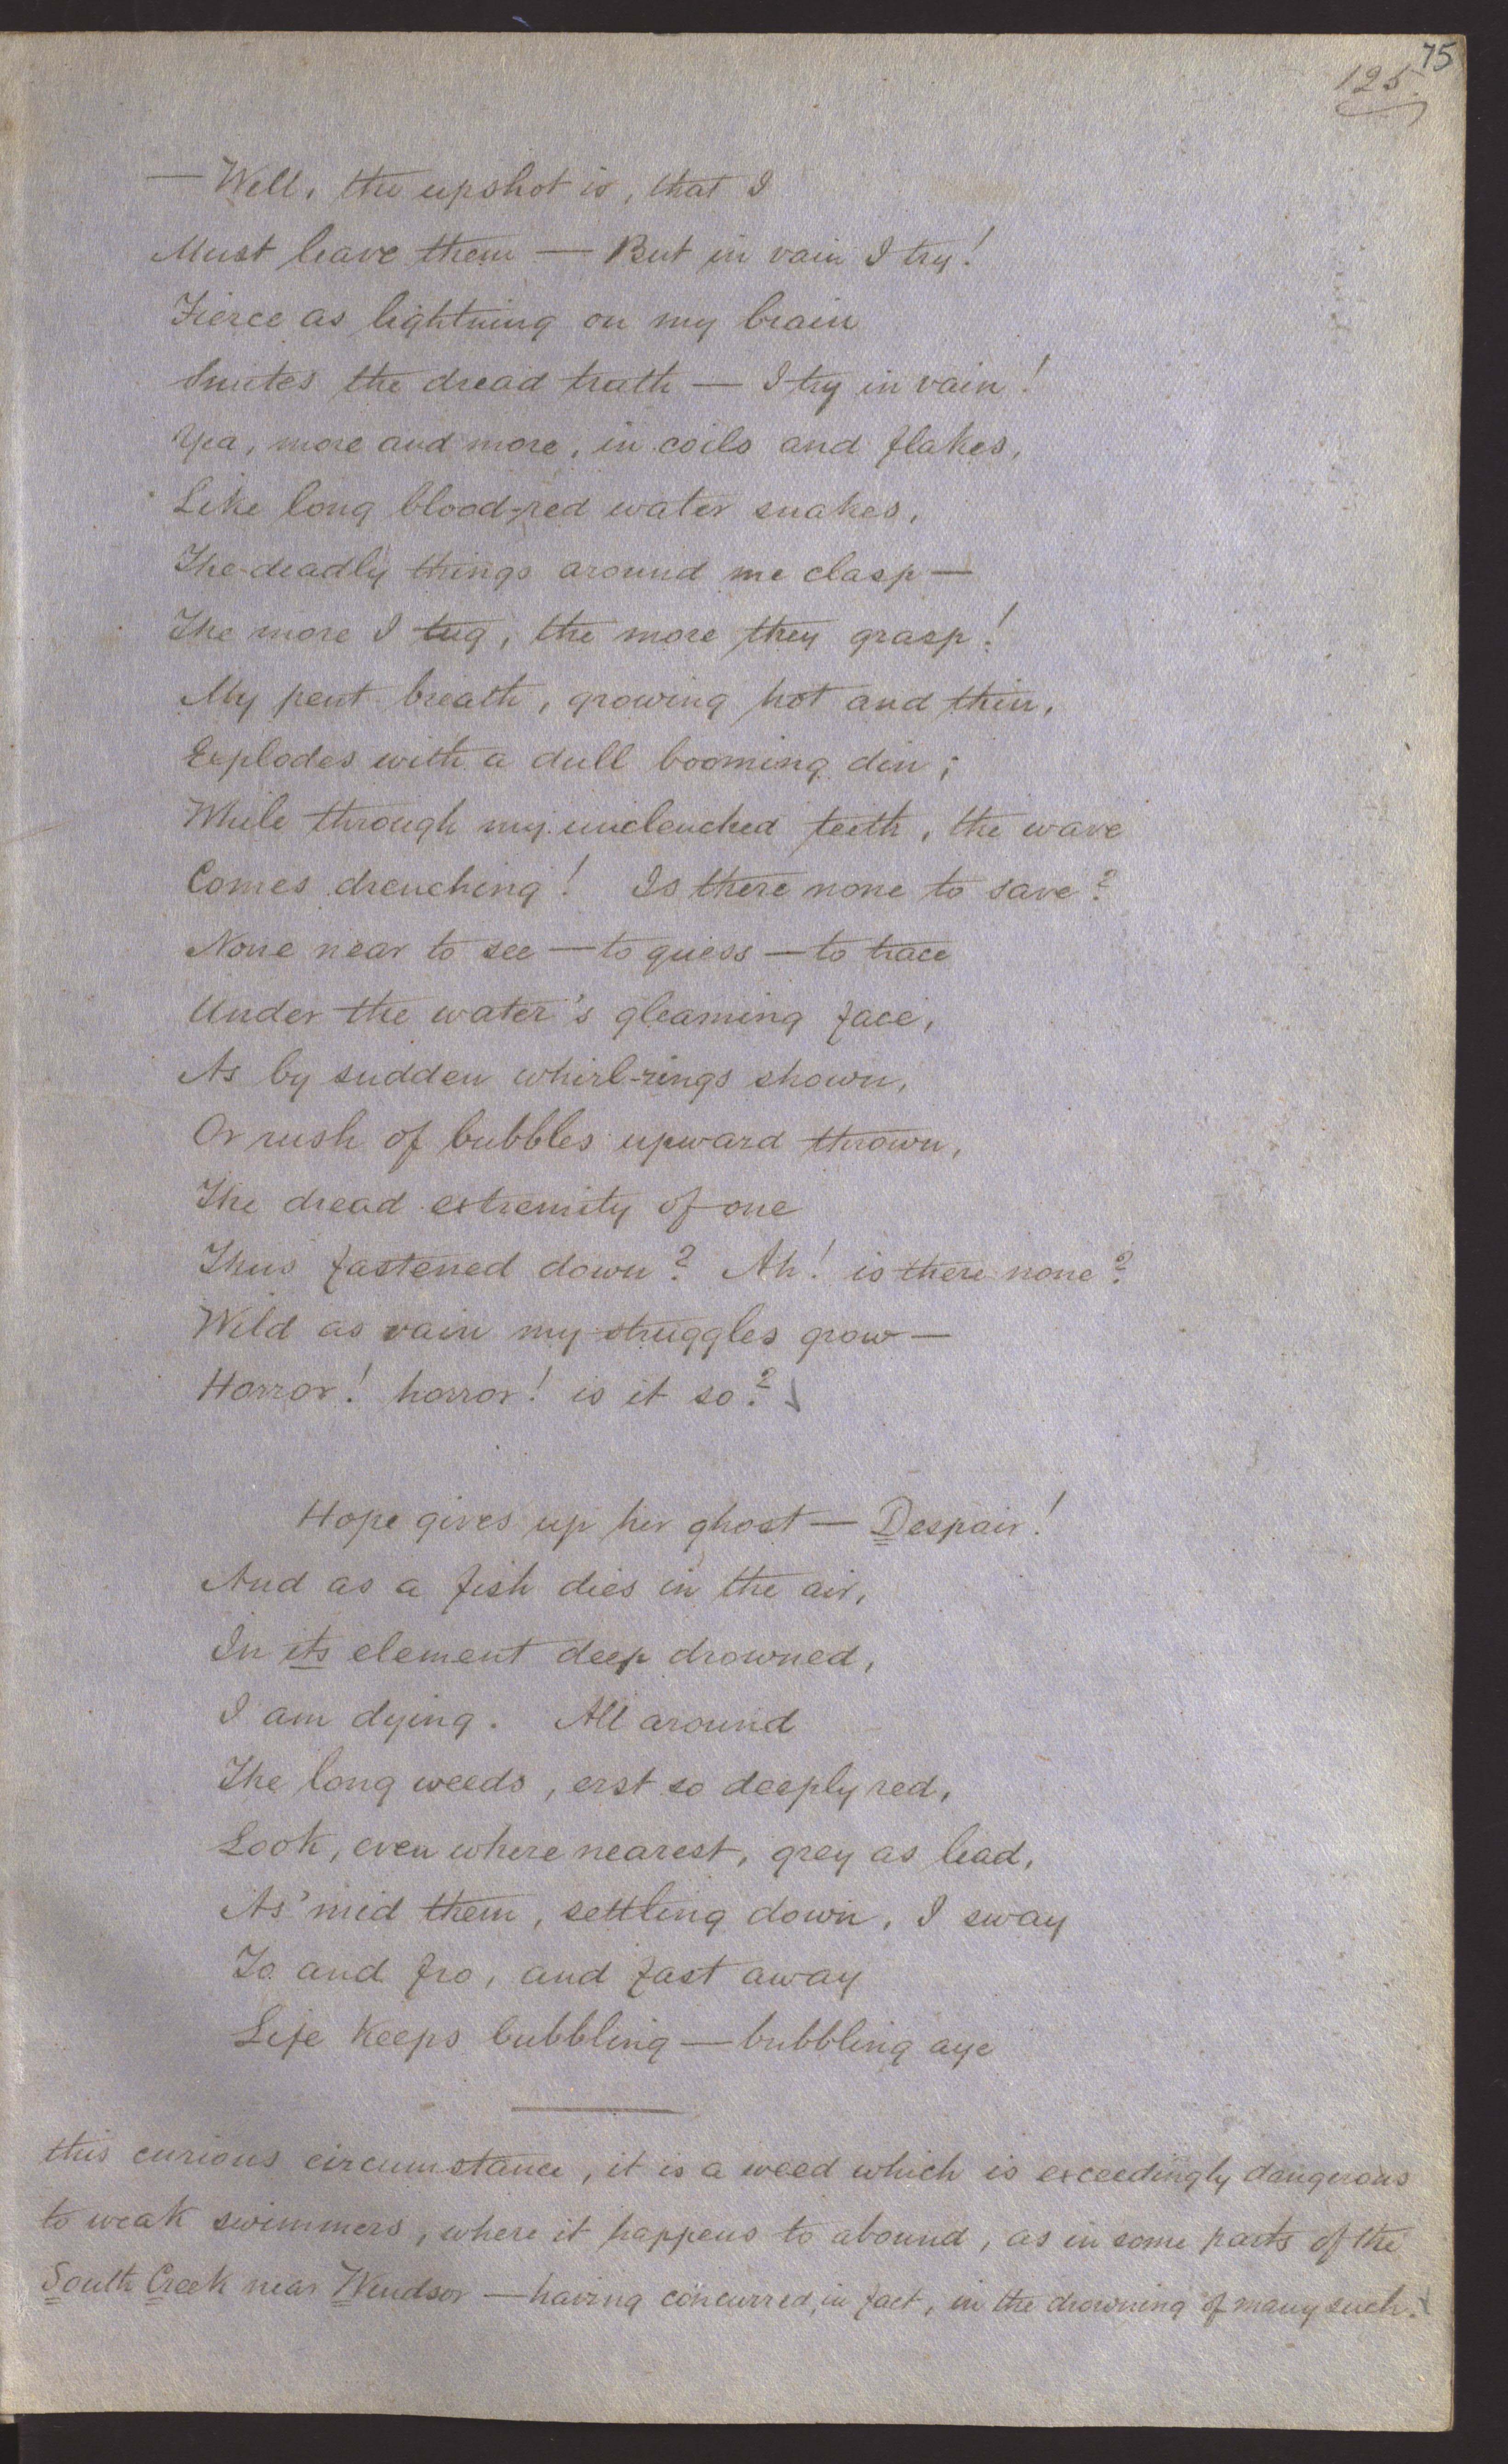 75
125.
— Well, the upshot is, that I
Must leave them — But in vain I try!
Fierce as lightning on my brain
Smites the dread truth — I try in vain!
Yea, more and more, in coils and flakes,
Like long blood-red water snakes,
The deadly things around me clasp —
The more I tug, the more they grasp!
My pent breath, growing hot and thin,
Explodes with a dull booming din;
While through my unclenched teeth, the wave
Comes drenching! Is there none to save?
None near to see — to guess — to trace
Under the water's gleaming face,
As by sudden whirl-rings shown,
Or rush of bubbles upward thrown,
The dread extremity of one
Thus fastened down? Ah! is there none?
Wild as vain my struggles grow —
Horror! horror! is it so?
Hope gives up her ghost — Despair!
And as a fish dies in the air,
In its element deep drowned,
I am dying. All around
The long weeds, erst so deeply red,
Look, even where nearest, grey as lead,
As 'mid them, settling down, I sway
To and fro, and fast away
Life keeps bubbling — bubbling aye
this curious circumstance, it is a weed which is exceedingly dangerous
to weak swimmers, where it happens to abound, as in some parts of the
South Creek near Windsor — having concurred, in fact, in the drowning of many such.